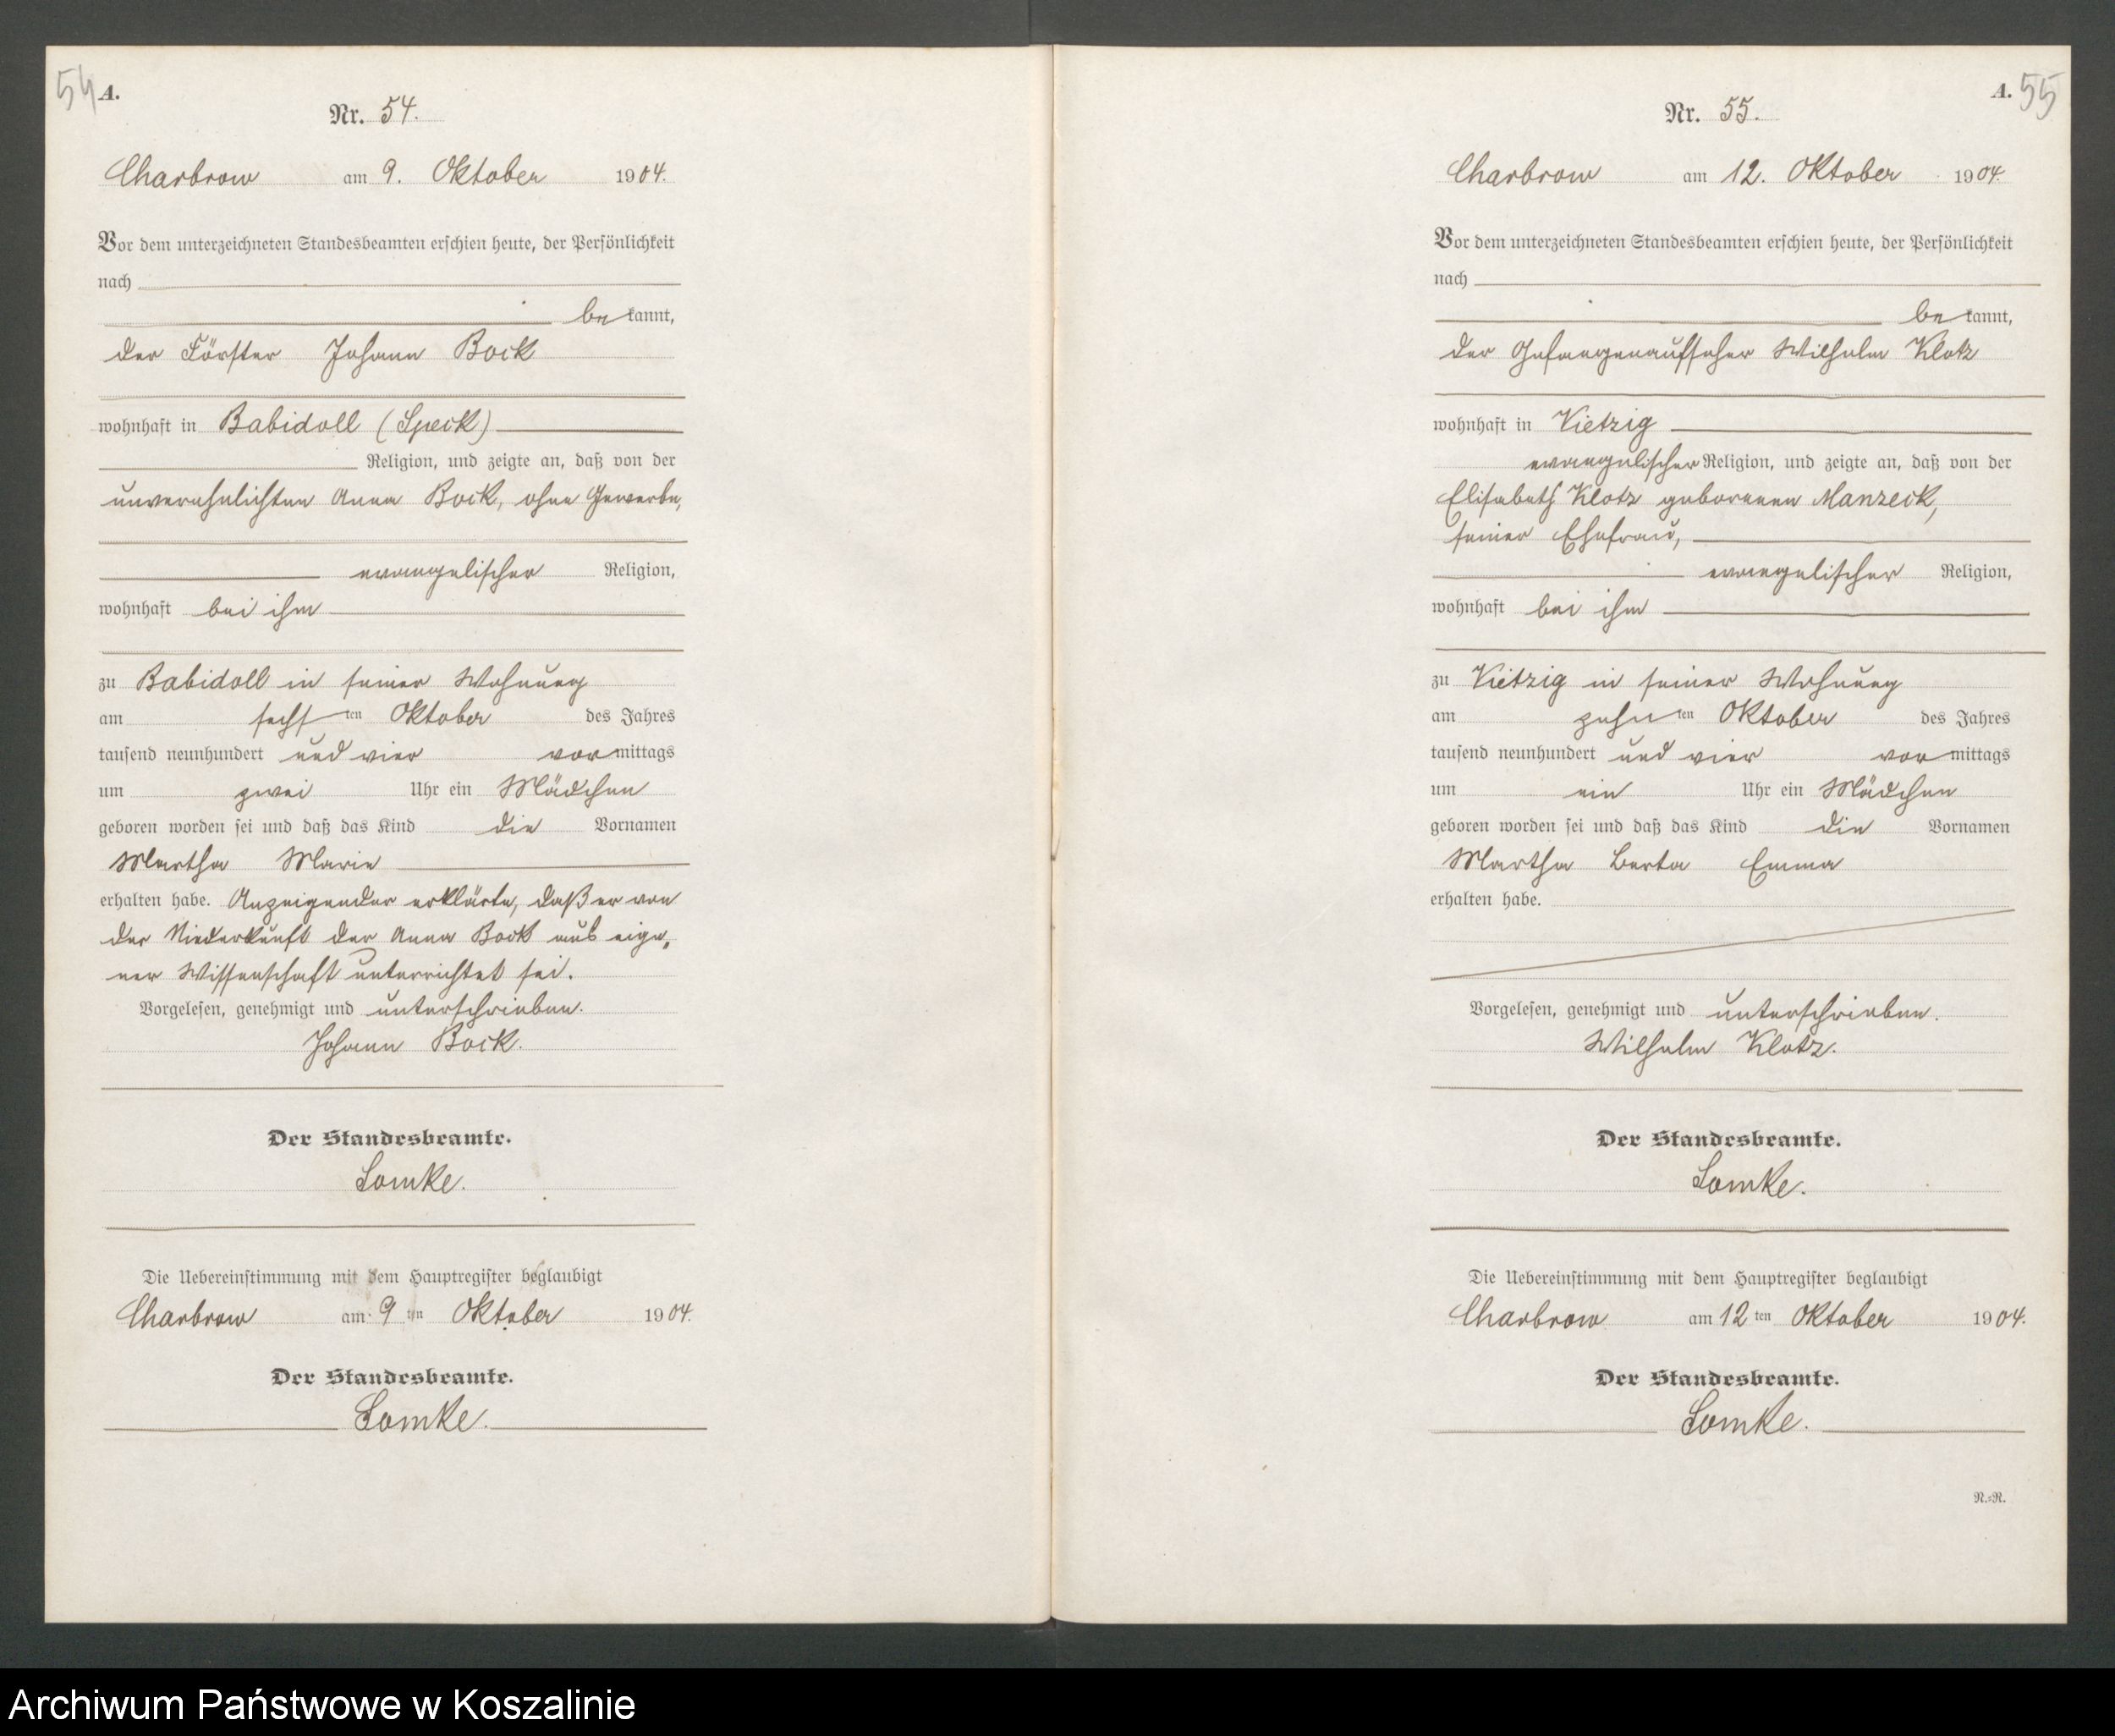 54 A.
Nr. 54.
Charbrow am 9. Oktober 1904.
Vor dem unterzeichneten Standesbeamten erschien heute, der Persönlichkeit
nach
be kannt,
der Förster Johann Bock
wohnhaft in Babidoll (Speck)
Religion, und zeigte an, daß von der
unverehelichten Anna Bock, ohne Gewerbe,
evangelischer Religion,
wohnhaft bei ihm
zu Babidoll in seiner Wohnung
am sechsten Oktober des Jahres
tausend neunhundert und vier vormittags
um zwei Uhr ein Mädchen
geboren worden sei und daß das Kind die Vornamen
Martha Marie
erhalten habe. Anzeigender erklärte, daß er von
der Niederkunft der Anna Bock aus eige„
ner Wissenschaft unterrichtet sei.
Vorgelesen, genehmigt und unterschrieben.
Johann Bock.
Der Standesbeamte.
Lomke.
Die Uebereinstimmung mit dem Hauptregister beglaubigt
Charbrow am 9 ten Oktober 1904.
Der Standesbeamte.
Lomke.
A. 55
Nr. 55.
Charbrow am 12. Oktober 1904.
Vor dem unterzeichneten Standesbeamten erschien heute, der Persönlichkeit
nach
be kannt,
der Gefangenaufseher Wilhelm Klotz
wohnhaft in Vietzig
evangelischer Religion, und zeigte an, daß von der
Elisabeth Klotz geborenen Manzeck,
seiner Ehefrau,
evangelischer Religion,
wohnhaft bei ihm
zu Vietzig in seiner Wohnung
am zehnten Oktober des Jahres
tausend neunhundert und vier vormittags
um ein Uhr ein Mädchen
geboren worden sei und daß das Kind die Vornamen
Martha Berta Emma
erhalten habe.
Vorgelesen, genehmigt und unterschrieben.
Wilhelm Klotz.
Der Standesbeamte.
Lomke.
Die Uebereinstimmung mit dem Hauptregister beglaubigt
Charbrow am 12 ten Oktober 1904.
Der Standesbeamte.
Lomke.
N.=R.
Archiwum Państwowe w Koszalinie